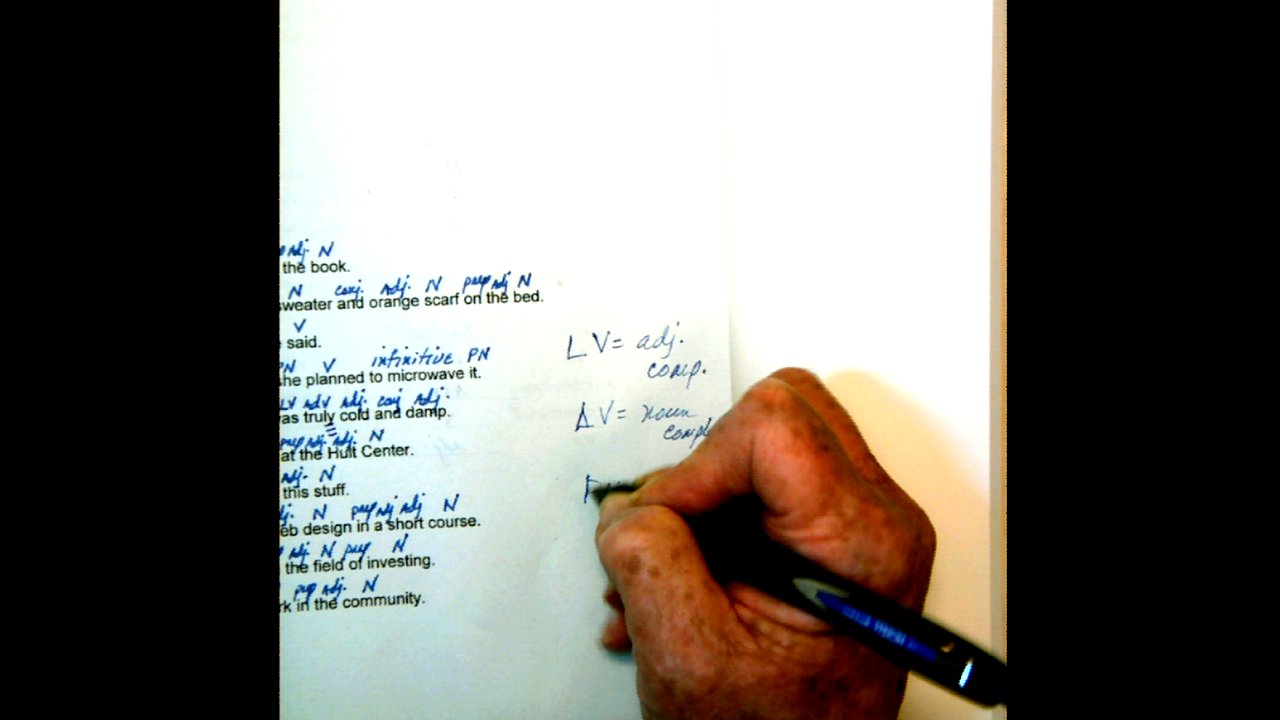 adj. N
the book.
N conj. adj. N prep adj N
sweater and orange scarf on the bed.
V
said.
PN V infinitive PN
she planned to microwave it.
LV adv adj. conj adj.
as truly cold and damp.
prep adj. adj. N
at the Hult Center.
adj. N
this stuff.
N prep adj adj N
eb design in a short course.
adj N prep N
the field of investing.
prep adj. N
rk in the community.
LV = adj.
comp.
V = noun